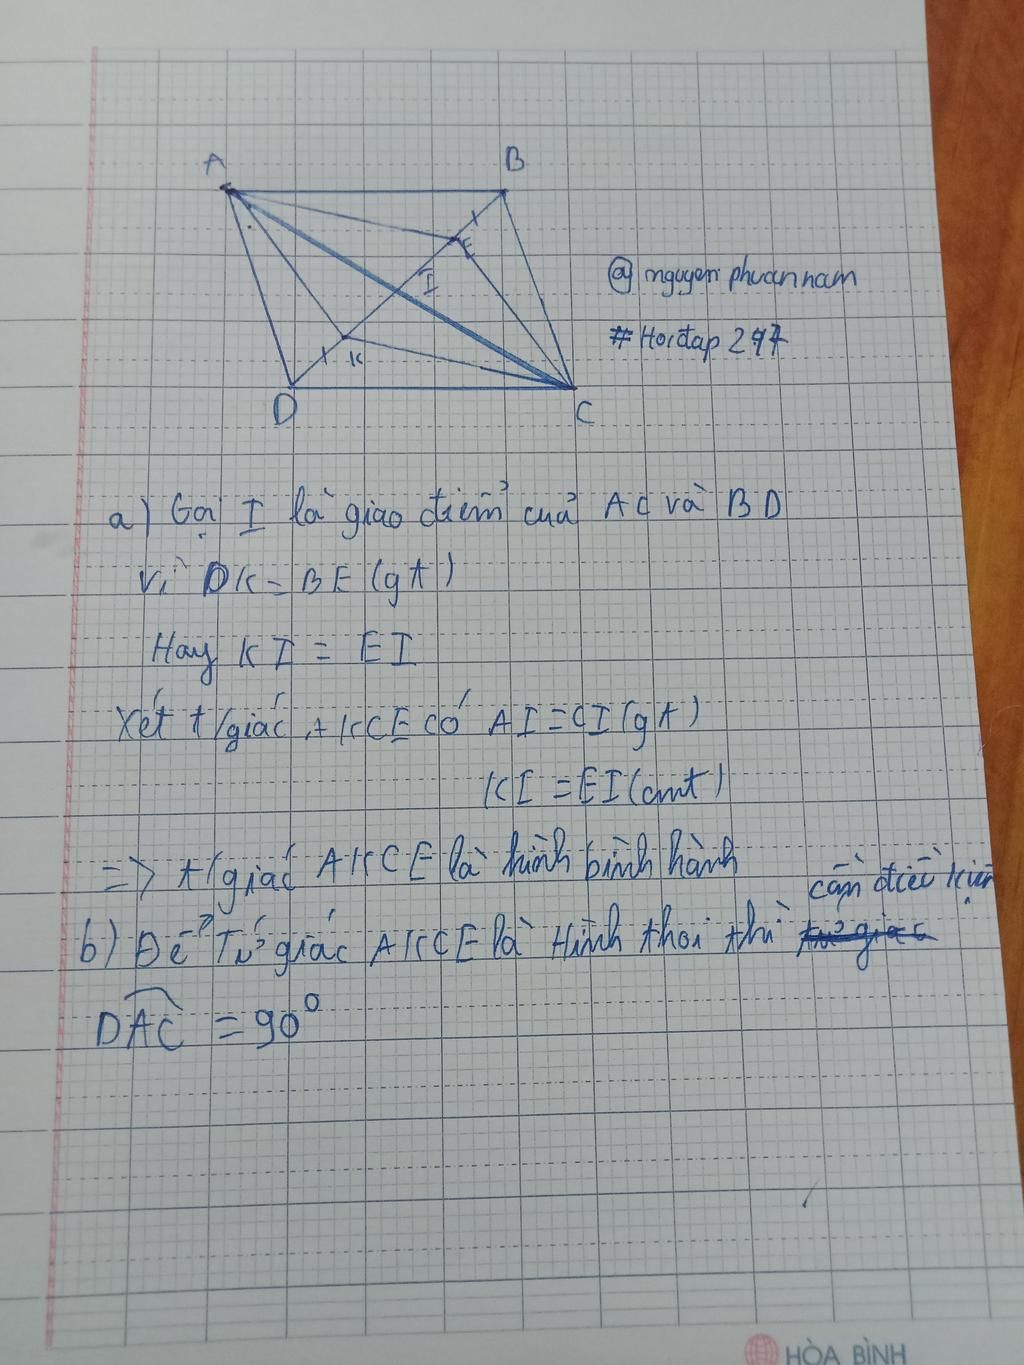 A
B
E
I
K
D
C
@ nguyen phuannam
# Hoidap 247
a) Gọi I là giao điểm của AC và BD
Vì DK = BE (gt)
Hay KI = EI
Xét t/giác AKCE có AI = CI (gt)
KI = EI (cmt)
=> t/giác AKCE là hình bình hành
cần điều kiện
b) Để Tứ giác AKCE là Hình thoi thì tứ giác
DAC = 90°
HÒA BÌNH